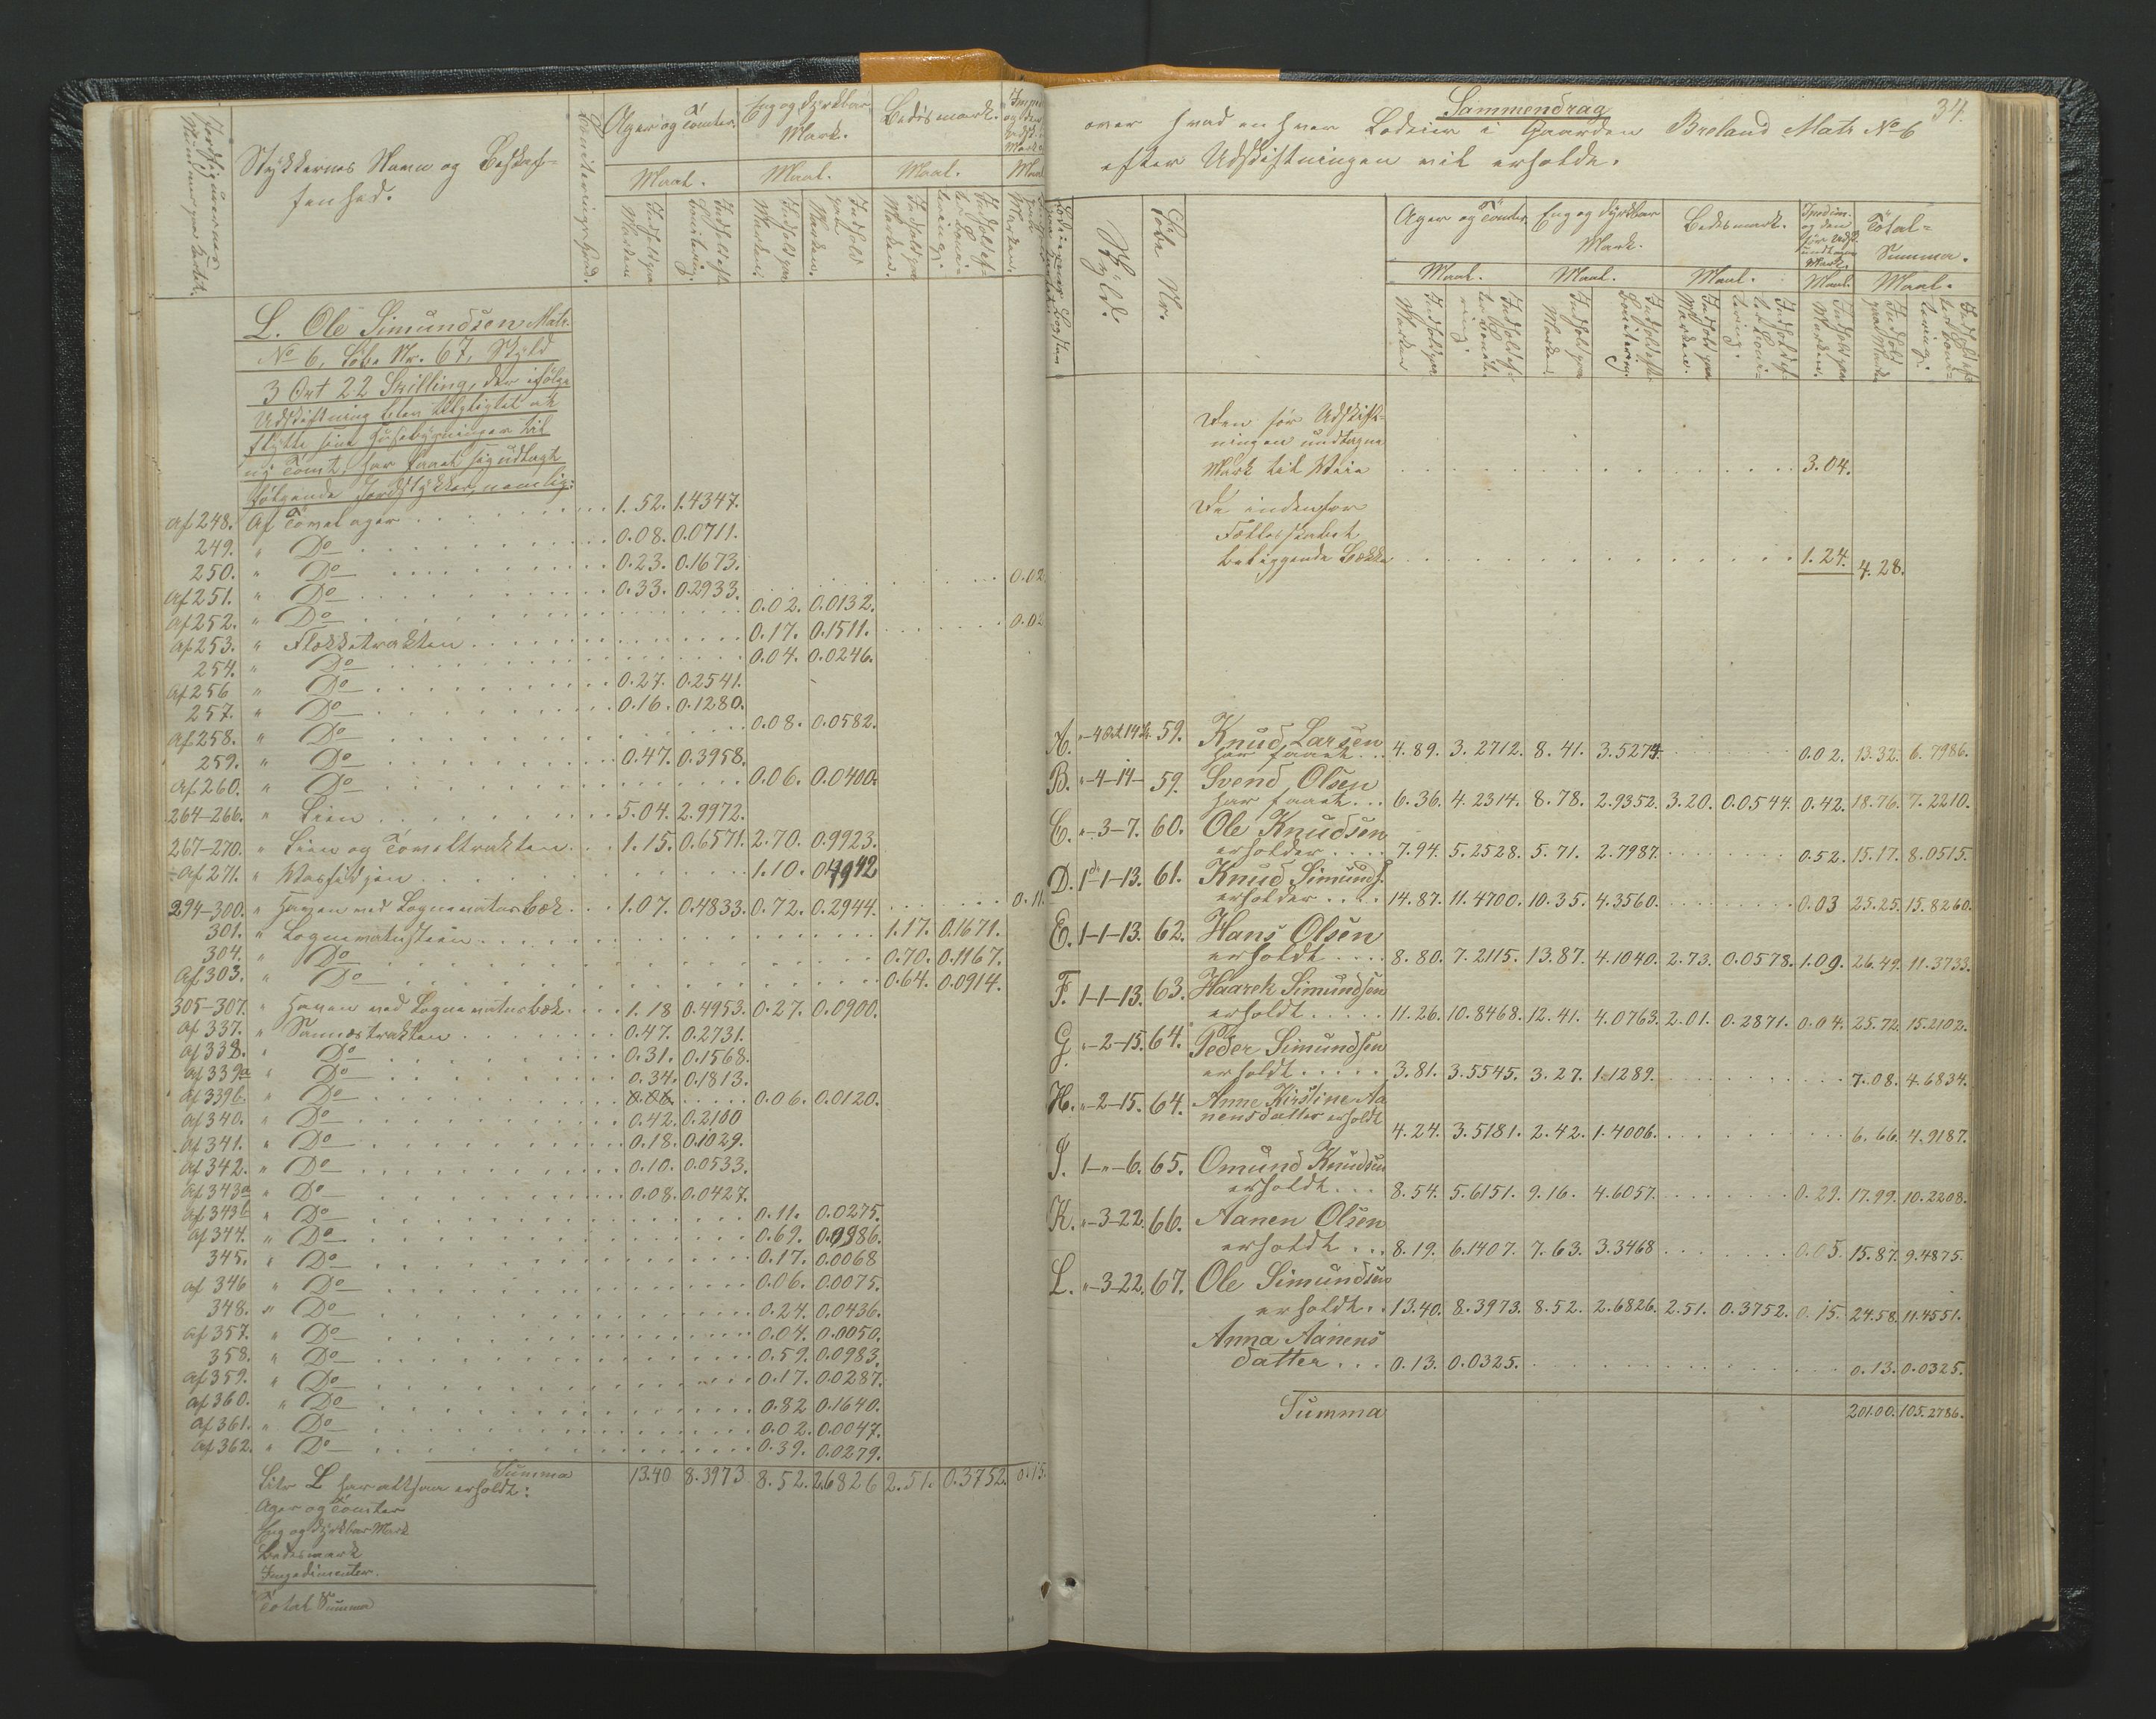 Jordfigurernes Nummer paa Kartet.
Stykkernes Navn og Beskaf-
fenhed.
Boniteringsgrad.
Ager og Tomter. Eng og dyrkbar Mark. Bedismark.
Maal. Maal. Maal. Maal
L. Ole Simundsen Matr.
No 6, Løbe Nr. 67, Skyld
3 Ort 22 Skilling, der ifølge
Udskiftning blev tilpligtet at
flytte sine Huusbygninger til
ny Tomt, har faaet sig udlagt
følgende Jordstykker, nemlig:
af 248. Af Tomelager 1.52. 1.4347.
249. " Do 0.08. 0.0711.
250. " Do 0.23. 0.1673.
af 251. " Do 0.33. 0.2933. 0.02
af 252. " Do 0.02. 0.0132.
af 253. " Flekketrakten 0.17. 0.1511. 0.02
254. " Do 0.04. 0.0246.
af 256 " Do 0.27. 0.2541.
257. " Do 0.16. 0.1280.
af 258. " Do 0.08. 0.0582.
259. " Do 0.47. 0.3958.
af 260. " Do 0.06. 0.0400.
264-266. " Lien 5.04. 2.9972.
267-270. " Lien og Tomeltrakten 1.15. 0.6571. 2.70. 0.9923.
af 271. " 1.10. 0.4942
294-300. " Hagen ved Lognevatnsbæk 1.07. 0.4833. 0.72. 0.2944. 0.11.
301. " Lognevatnsteen 1.17. 0.1671.
304. " Do 0.70. 0.1167.
Af 303. " Do 0.64. 0.0914.
305-307. " Hagen ved Lognevatnsbæk 1.18 0.4953. 0.27. 0.0900.
af 337. " Sannestrakten 0.47. 0.2731.
af 338. " Do 0.31. 0.1568.
af 339a " Do 0.34. 0.1813.
af 339b. " Do 0.06. 0.06. 0.0120.
af 340. " Do 0.42. 0.2100
af 341. " Do 0.18. 0.1029.
af 342. " Do 0.10. 0.0533.
af 343a " Do 0.08. 0.0427.
af 343b " Do 0.11. 0.0275.
af 344. " Do 0.69. 0.0986.
345. " Do 0.17. 0.0068
af 346 " Do 0.06. 0.0075.
348. " Do 0.24. 0.0436.
af 357. " Do 0.04. 0.0050.
358. " Do 0.59. 0.0983.
af 359. " Do 0.17. 0.0287.
af 360. " Do 0.82 0.1640.
af 361. " Do 0.02. 0.0047.
af 362. " Do 0.39. 0.0279.
Summa 13.40 8.3973 8.52. 2.6826 2.51. 0.3752. 0.15.
Litr L har altsaa erholdt:
Ager og Tomter
Eng og dyrkbar Mark
Bedesmark
Impedimenter.
Total Summa
34.
Sammendrag
over hvad enhver Lodeier i Gaarden Breland Matr No 6
efter Udskiftningen vil erholde.
Skyld. Løbe Nr. Ager og Tomter. Eng og dyrkbar Mark. Bedesmark. Total-Summa.
Maal. Maal. Maal. Maal. Maal.
Den før Udskift-
ningen undtagne
Mark til Veie 3.04.
De indenfor
Fællesskabet
beliggende Bække 1.24. 4.28.
A. "-4 Ort 14 ß. 59. Knud Larsen
har faaet 4.89. 3.2712. 8.41. 3.5274. 0.02. 13.32. 6.7986.
B. "-4-14- 59. Svend Olsen
har faaet 6.36. 4.2314. 8.78. 2.9352. 3.20. 0.0544. 0.42. 18.76. 7.2210.
C. "-3-7. 60. Ole Knudsen
erholder 7.94. 5.2528. 5.71. 2.7987. 0.52. 15.17. 8.0515.
D. 1d-1-13. 61. Knud Simunds.
erholder 14.87. 11.4700. 10.35. 4.3560. 0.03 25.25. 15.8260.
E. 1-1-13. 62. Hans Olsen
erholdt 8.80. 7.2115. 13.87. 4.1040. 2.73. 0.0578. 1.09. 26.49. 11.3733.
F. 1-1-13. 63. Haarek Simundsen
erholdt 11.26. 10.8468. 12.41. 4.0763. 2.01. 0.2871. 0.04. 25.72 15.2102.
G. "-2-15. 64. Peder Simundsen
erholdt 3.81. 3.5545. 3.27. 1.1289. 7.08. 4.6834.
H. "-2-15. 64. Anne Kirstine Aa
nensdatter erholdt
4.24. 3.5181. 2.42. 1.4006. 6.66. 4.9187.
I. 1-"-6. 65. Omund Knudsen
erholdt 8.54. 5.6151. 9.16. 4.6057. 0.29. 17.99. 10.2208.
K. "-3-22. 66. Aanen Olsen
erholdt 8.19. 6.1407. 7.63. 3.3468 0.05. 15.87. 9.4875.
L. "-3-22. 67. Ole Simundsen
erholdt 13.40. 8.3973. 8.52. 2.6826. 2.51. 0.3752. 0.15. 24.58. 11.4551.
Anna Aanens
datter 0.13. 0.0325. 0.13. 0.0325.
Summa 201.00. 105.2786.